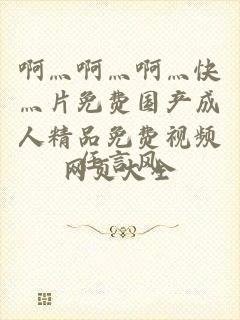 啊灬啊灬啊灬快
灬片免费国产成
人精品免费视频
网页大全
任言风